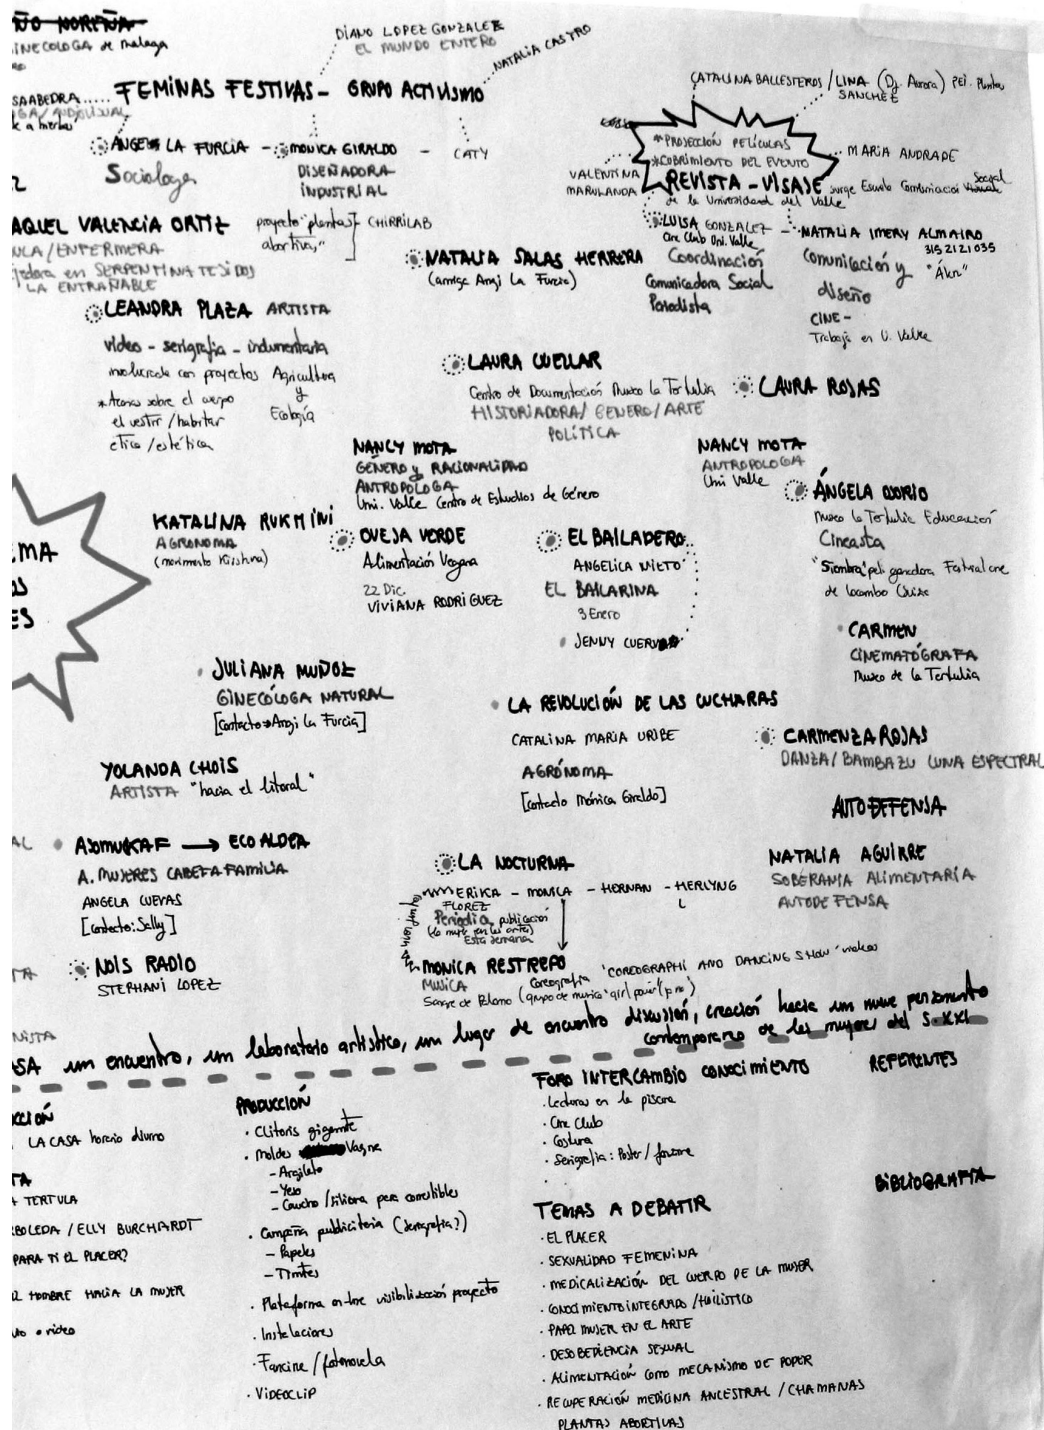 ÑO NOREÑA
GINECOLOGA de Malaga
DIANO LOPEZ GONZALEZ
EL MUNDO ENTERO
NATALIA CASTRO
SAABEDRA.....
FEMINAS FESTIVAS - GRUPO ACTIVISMO
CATALINA BALLESTEROS / LINA (Dj. Aurora) pei. Planta
SANCHEZ
ANGELA LA FURCIA - MONICA GIRALDO - CATY
Sociologa
DISEÑADORA
INDUSTRIAL
*PROYECCIÓN PELÍCULAS
*COBRIMIENTO DEL EVENTO
MARIA ANDRADE
VALENTINA
MARULANDA
REVISTA - VISAJE surge Escuela Comunicación Social
de la Universidad del Valle
AQUEL VALENCIA ORTIZ
ULA / ENFERMERA
jedora en SERPENTINA TEJIDOS
LA ENTRAÑABLE
proyecto "plantas
abortivas"
CHIRRILAB
LUISA GONZALEZ - NATALIA IMERY ALMARIO
Cine Club Uni. Valle
315 2121 035
Coordinación
Comunicadora Social
Periodista
Comunicación y
diseño
CINE -
Trabaja en U. Valle
NATALIA SALAS HERRERA
(amiga Angi La Furcia)
LEANDRA PLAZA ARTISTA
video - serigrafia - indumentaria
involucrada con proyectos Agricultura
y
Ecología
*Acciones sobre el cuerpo
el vestir / habitar
etica / estética
LAURA CUELLAR
Centro de Documentación Museo la Tertulia
HISTORIADORA / GENERO / ARTE
POLÍTICA
LAURA ROJAS
NANCY MOTA
GÉNERO y RACIONALIDAD
ANTROPOLOGA
Uni. Valle Centro de Estudios de Género
NANCY MOTA
ANTROPOLOGA
Uni Valle
ÁNGELA OSORIO
Museo la Tertulia Educación
Cineasta
"Siembra" peli ganadora Festival cine
KATALINA RUKMINI
AGRONOMA
(movimiento Krishna)
OVEJA VERDE
Alimentación Vegana
22 Dic.
VIVIANA RODRIGUEZ
EL BAILADERO
ANGELICA NIETO
EL BAILARINA
3 Enero
JENNY CUERVO
EMA
OS
ES
CARMEN
CINEMATÓGRAFA
Museo de la Tertulia
JULIANA MUÑOZ
GINECÓLOGA NATURAL
[Contacto → Angi La Furcia]
LA REVOLUCIÓN DE LAS CUCHARAS
CATALINA MARIA URIBE
AGRÓNOMA
[contacto Mónica Giraldo]
CARMENZA ROJAS
DANZA / BAMBAZU LUNA ESPECTRAL
YOLANDA CHOIS
ARTISTA "hacia el litoral"
AUTODEFENSA
ASOMUCAF → ECO ALDEA
A. MUJERES CABEZA FAMILIA
ANGELA CUEVAS
[contacto: Sally]
NATALIA AGUIRRE
SOBERANIA ALIMENTARÍA
AUTODEFENSA
LA NOCTURNA
ERIKA - MONICA - HERNAN - HERLYNG
FLOREZ
Periodica publicación
(la mujer en las artes)
Esta semana
NOIS RADIO
STEPHANI LOPEZ
MONICA RESTREPO
MUSICA
Coreografia 'COREOGRAPHI AND DANCING SHOW' videos
Sangre de Palomo (grupo de musica 'girl power')
CASA un encuentro, un laboratorio artistico, un lugar de encuentro discusión, creación hacia un nuevo pensamiento
contemporaneo de las mujeres del S. XXI
CCIÓN
LA CASA horario diurno
TA
TERTULA
RBOLEDA / ELLY BURCHARDT
PARA TI EL PLACER?
EL HOMBRE HACIA LA MUJER
o video
PRODUCCIÓN
· Clitoris gigante
· Moldes Vagina
- Arcilla
- Yeso
- Caucho / silicona para comestibles
· Campaña publicitaria (serigrafia?)
- Papeles
- Tintes
· Plataforma on-line visibilización proyecto
· Instalaciones
· Fancine / fotonovela
· VIDEOCLIP
FORO INTERCAMBIO CONOCIMIENTO
· Lecturas en la piscina
· Cine Club
· Costura
· Serigrafia: Poster / fanzine
TEMAS A DEBATIR
· EL PLACER
· SEXUALIDAD FEMENINA
· MEDICALIZACIÓN DEL CUERPO DE LA MUJER
· CONOCIMIENTO INTEGRADO / HOLÍSTICO
· PAPEL MUJER EN EL ARTE
· DESOBEDIENCIA SEXUAL
· ALIMENTACIÓN COMO MECANISMO DE PODER
· RECUPERACIÓN MEDICINA ANCESTRAL / CHAMANAS
PLANTAS ABORTIVAS
REFERENTES
BIBLIOGRAFIA